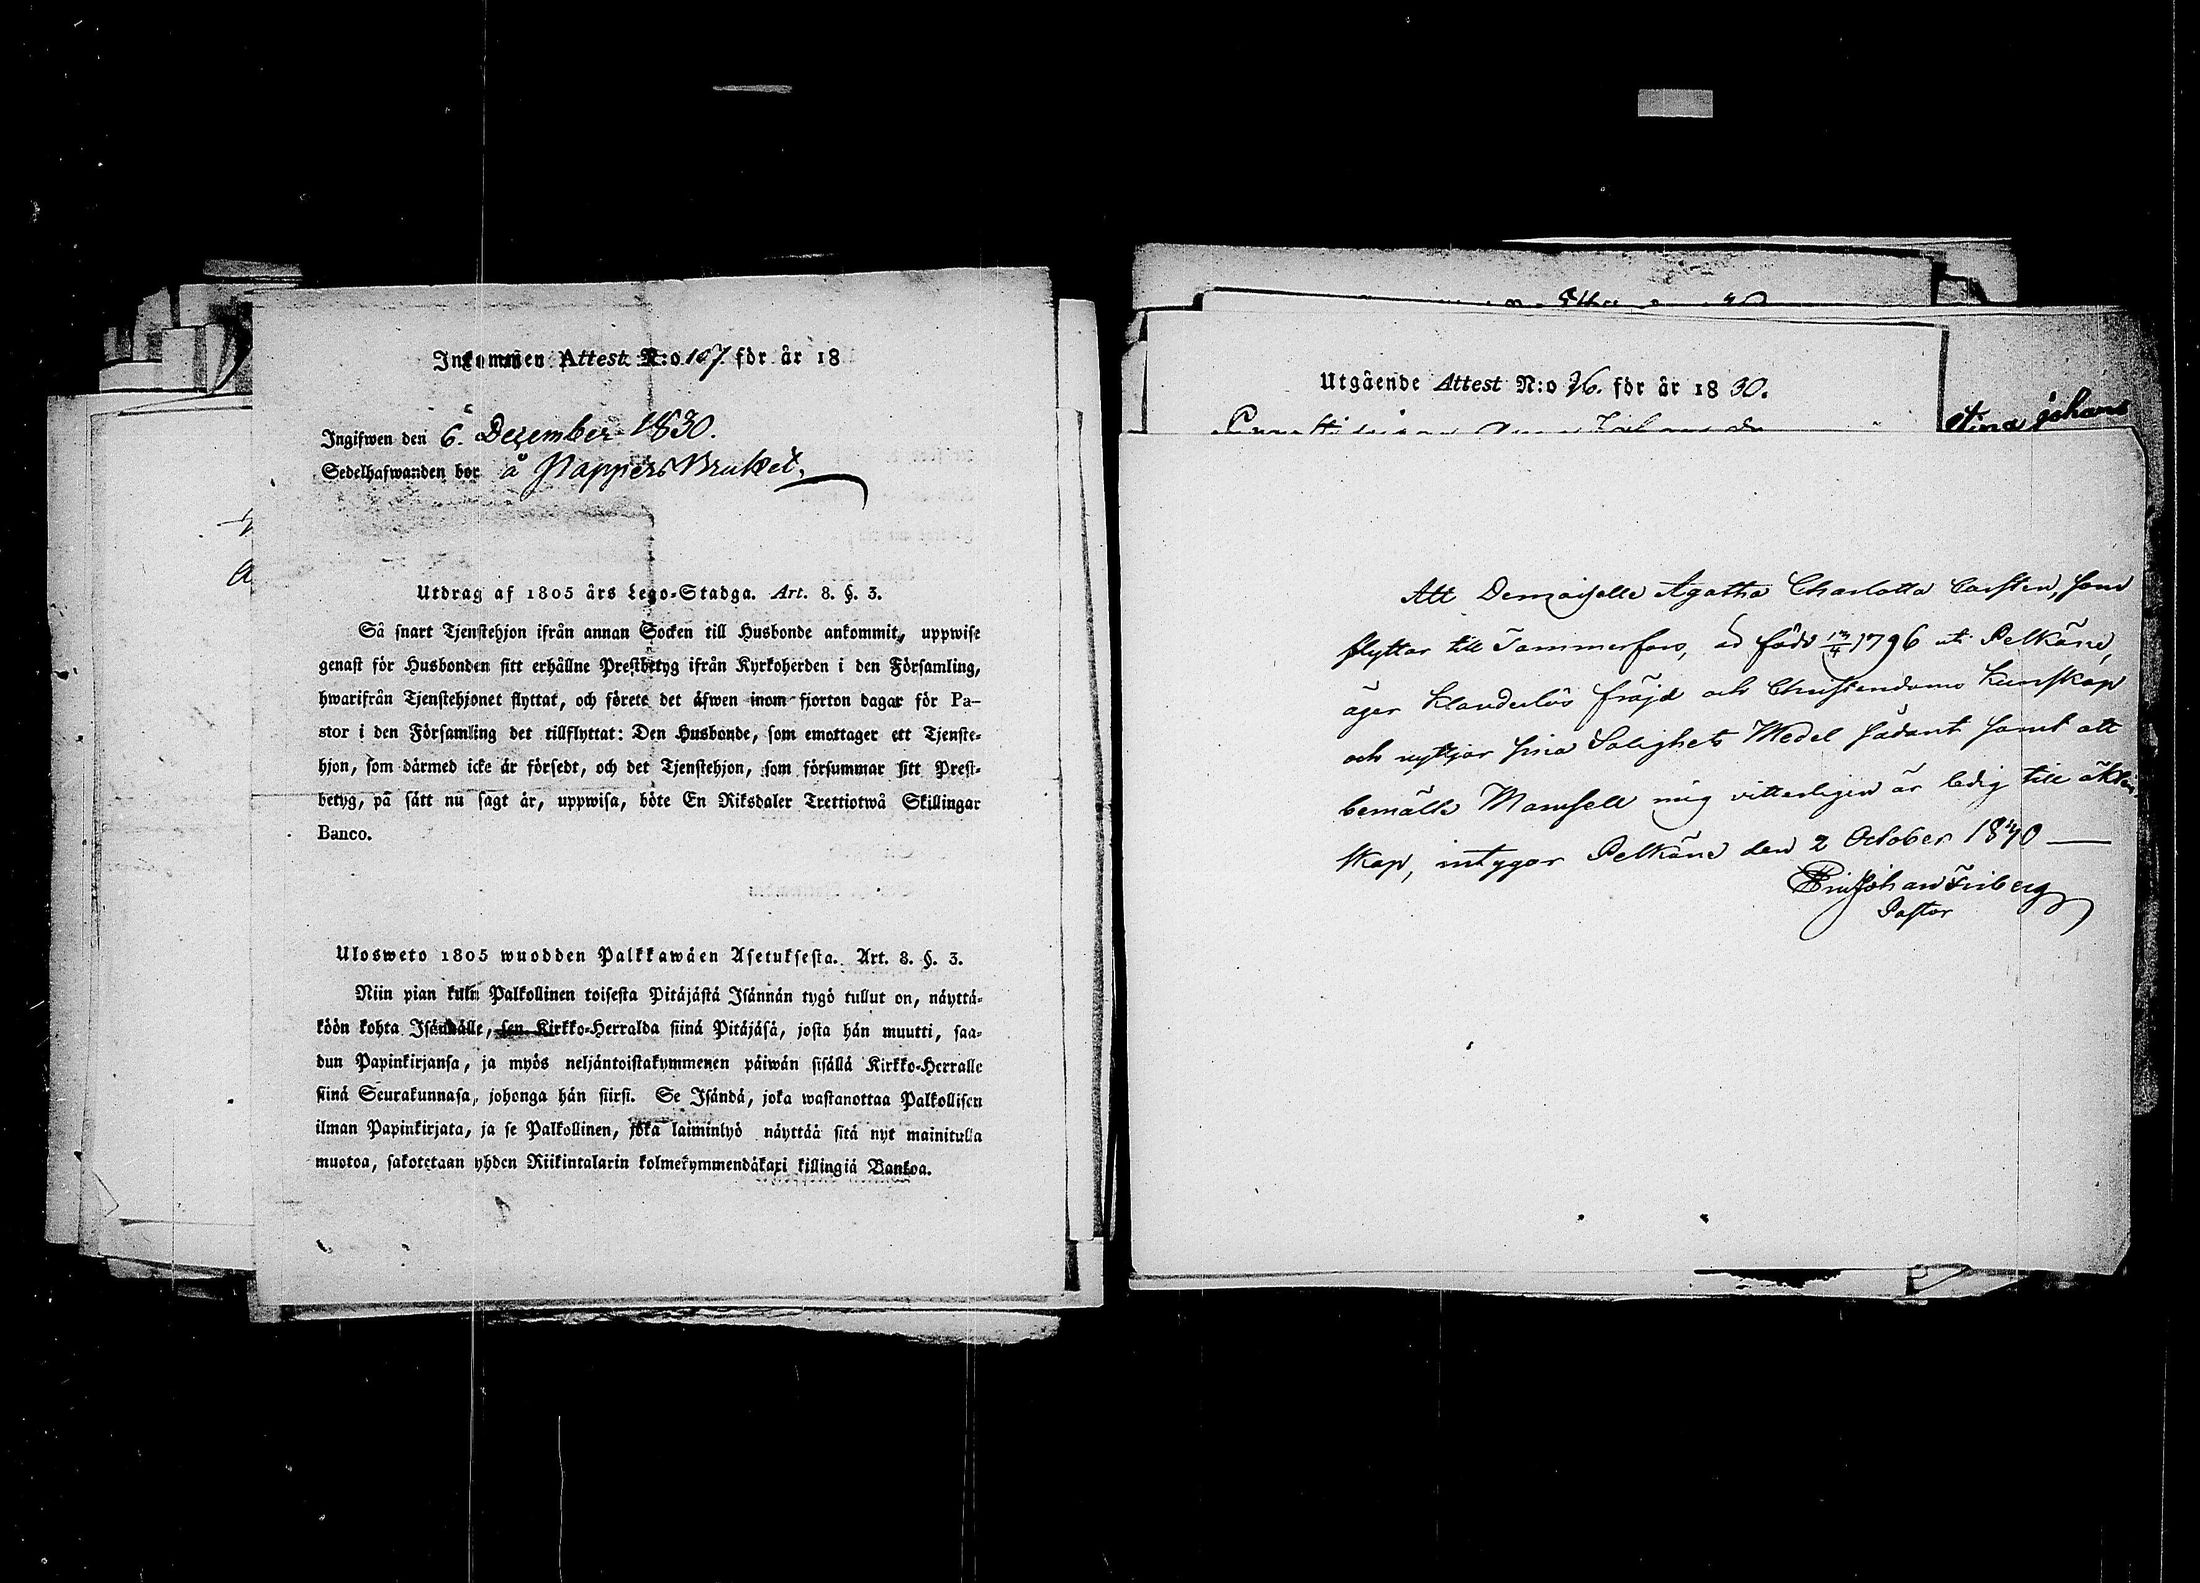 Inkommen Attest N:o 107. för år 18
Ingifwen den 6. Dezember 1830.
Sedelhafwanden bor å Pappers Bruket.
Utdrag af 1805 års Lego-Stadga. Art. 8. §. 3.
Så snart Tjenstehjon ifrån annan Socken till Husbonde ankommit, uppwise
genast för Husbonden sitt erhållne Prestbetyg ifrån Kyrkoherden i den Församling,
hwarifrån Tjenstehjonet flyttat, och förete det äfwen inom fjorton dagar för Pa-
stor i den Församling det tillflyttat: Den Husbonde, som emottager ett Tjenste-
hjon, som därmed icke är försedt, och det Tjenstehjon, som försummar sitt Prest-
betyg, på sätt nu sagt är, uppwisa, böte En Riksdaler Trettiotwå Skillingar
Banco.
Ulosweto 1805 wuodden Palkkawäen Asetuksesta. Art. 8. §. 3.
Niin pian kuin Palkollinen toisesta Pitäjästä Isännän tygö tullut on, näyttä-
köön kohta Isännälle, sen Kirkko-Herralda siinä Pitäjäsä, josta hän muutti, saa-
dun Papinkirjansa, ja myös neljäntoistakymmenen päiwän sisällä Kirkko-Herralle
siinä Seurakunnasa, johonga hän siirsi. Se Isändä, joka wastanottaa Palkollisen
ilman Papinkirjata, ja se Palkollinen, joka laiminlyö näyttää sitä nyt mainitulla
muotoa, sakotetaan yhden Riikintalarin kolmekymmendäkaxi killingiä Bankoa.
Utgående Attest N:o 26. för år 1830.
Stina Johans
Att Demoiselle Agatha Charlotta Carsten, som
flyttar till Tammerfors, är född 13/4 1796 uti Pelkäne,
äger klanderlös fräjd och Christendoms Kunskap
och nyttjar sina Salighets Medel sådant samt att
bemälte Mamsell mig vitterligen är ledig till äkten-
skap, intygar Pelkäne den 2 October 1840
Johan Friberg
Pastor